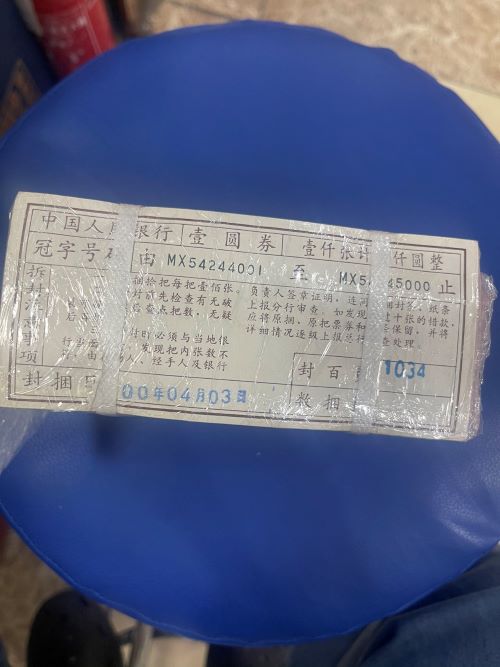 中国人民银行 壹圆券 壹仟张 仟圆整
冠字号 由 MX54244001 至 MX54 45000 止
拆封注意事项
捆拾把每把壹佰张。
封前先检查有无破
后查点把数,无疑
时必须与当地银
发现把内张数不
人、经手人及银行
负责人签章证明,连同 封签、纸条
上报分行审查。如发现 十张的错款,
应将原捆、原把票券和 保留,并将
详细情况逐级上报总行 查处理。
封捆日 00年04月03日
封百 1034
数捆